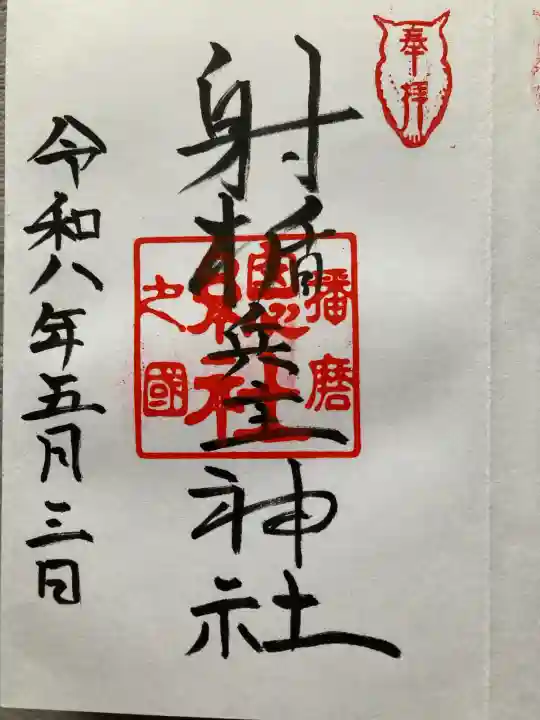 奉拝
射楯兵主神社
播磨
總社
之國
令和八年五月三日